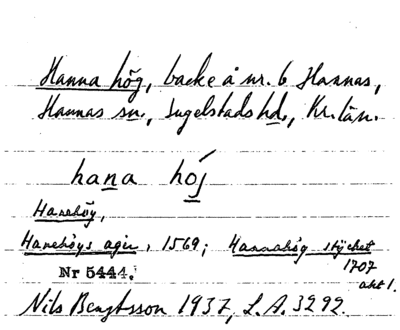 Hanna hög, backe å nr. 6 Hannas,
Hannas sn., Ingelstads hd., Kr. län.
hana hój
Hanehöy,
Hanehöys agir, 1569; Hannahög stÿchet
1707
Nr 5444.
akt 1.
Nils Bengtsson 1937, L.A. 3292.